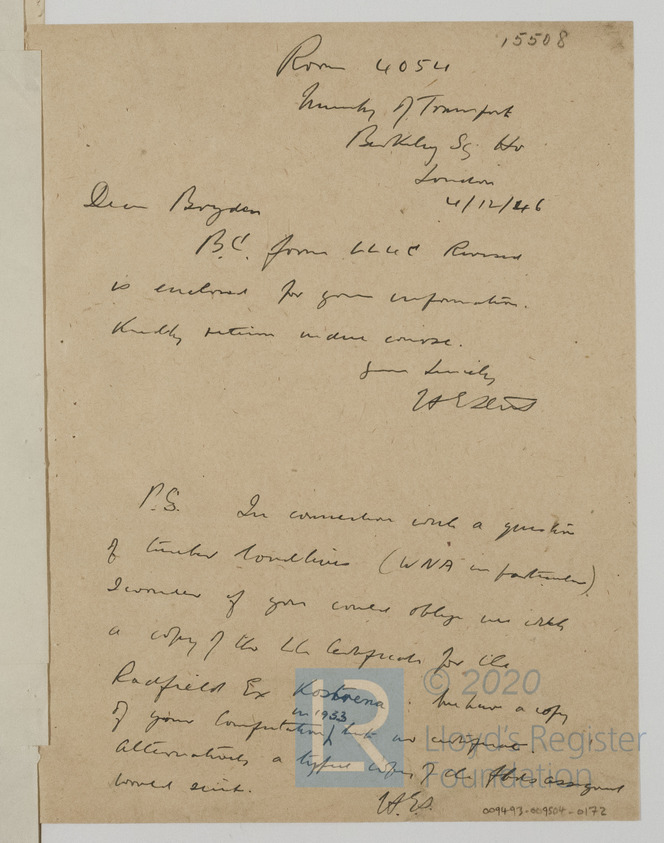 15508
Room 4054
Ministry of Transport
Berkeley Sq Ho
London
4/12/46
Dear Boyden
B.C. form LL4C Revised
is enclosed for your information.
Kindly return in due course.
yours Sincerely
P.S. In connection with a question
of timber loadlines (WNA in particular)
I wonder if you could oblige me with
a copy of the LL Certificate for the
Radfield Ex Kostrena. We have a copy
in 1933
of your Computation but no certificate.
Alternatively a typed copy of the fbds assigned
would suit.
H.E.S.
© 2020
LR
Lloyd's Register
Foundation
009493-009504-0172